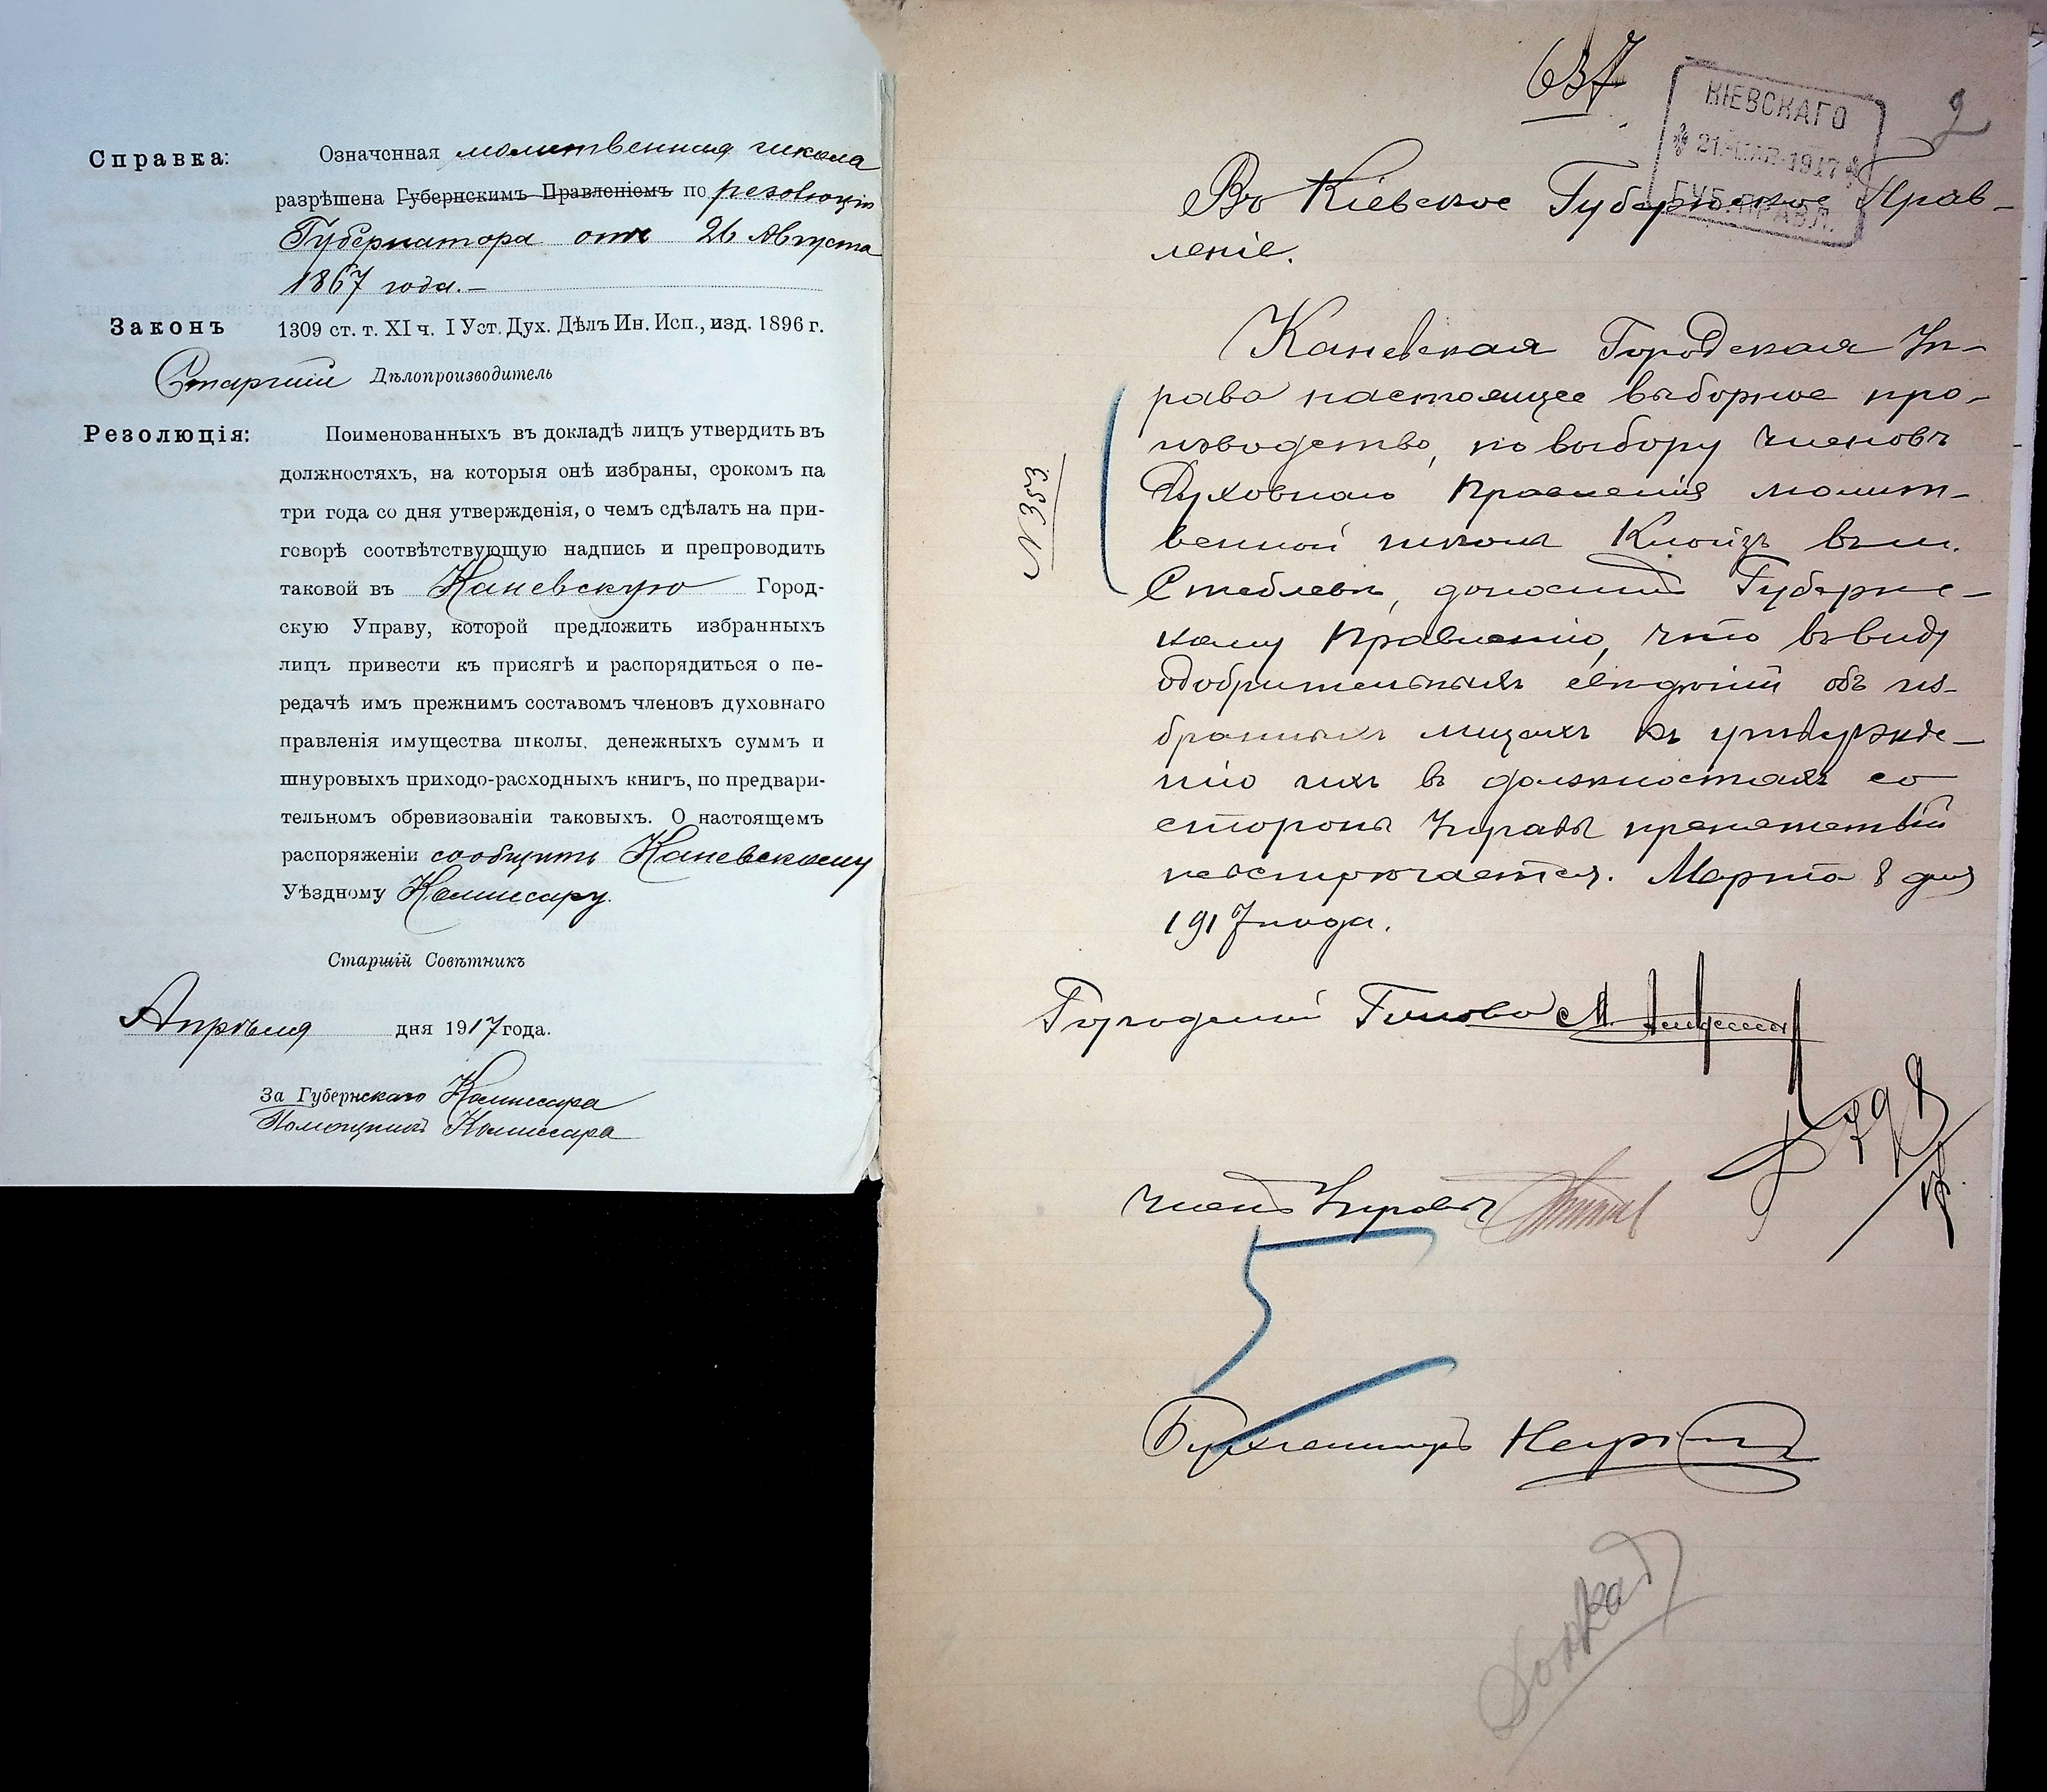 Справка: Означенная молитвенная школа
разрѣшена Губернскимъ Правленіемъ по резолюціи
Губернатора отъ 26 Августа
1867 года.–
Законъ 1309 ст. т. XI ч. I Уст. Дух. Дѣлъ Ин. Исп., изд. 1896 г.
Старшій Дѣлопроизводитель
Резолюція: Поименованныхъ въ докладѣ лицъ утвердить въ
должностяхъ, на которыя онѣ избраны, срокомъ на
три года со дня утвержденія, о чемъ сдѣлать на при-
говорѣ соотвѣтствующую надпись и препроводить
таковой въ Каневскую Город-
скую Управу, которой предложить избранныхъ
лицъ привести къ присягѣ и распорядиться о пе-
редачѣ имъ прежнимъ составомъ членовъ духовнаго
правленія имущества школы, денежныхъ суммъ и
шнуровыхъ приходо-расходныхъ книгъ, по предвари-
тельномъ обревизованіи таковыхъ. О настоящемъ
распоряженіи сообщить Каневскому
Уѣздному Комиссару.
Старшій Совѣтникъ
Апрѣля дня 1917 года.
За Губернскаго Комиссара
Помощникъ Комиссара
637
2
КІЕВСКАГО
21 МАР 1917
ГУБ. ПРАВЛ.
Въ Кіевское Губернское Прав-
леніе.
Каневская Городская Уп-
рава настоящее выборное про-
изводство, по выбору членовъ
Духовнаго Правленія молит-
венной школы Клойзъ въ м.
Стеблевѣ, доноситъ Губернс-
кому Правленію, что въ виду
одобрительныхъ свѣдѣній объ из-
бранныхъ лицахъ къ утвержде-
нію ихъ въ должностяхъ со
стороны Управы препятствій
невстрѣчается. Марта 8 дня
1917 года.
N 353
Городской Голова
Членъ Управы
Бухгалтеръ
Доклад